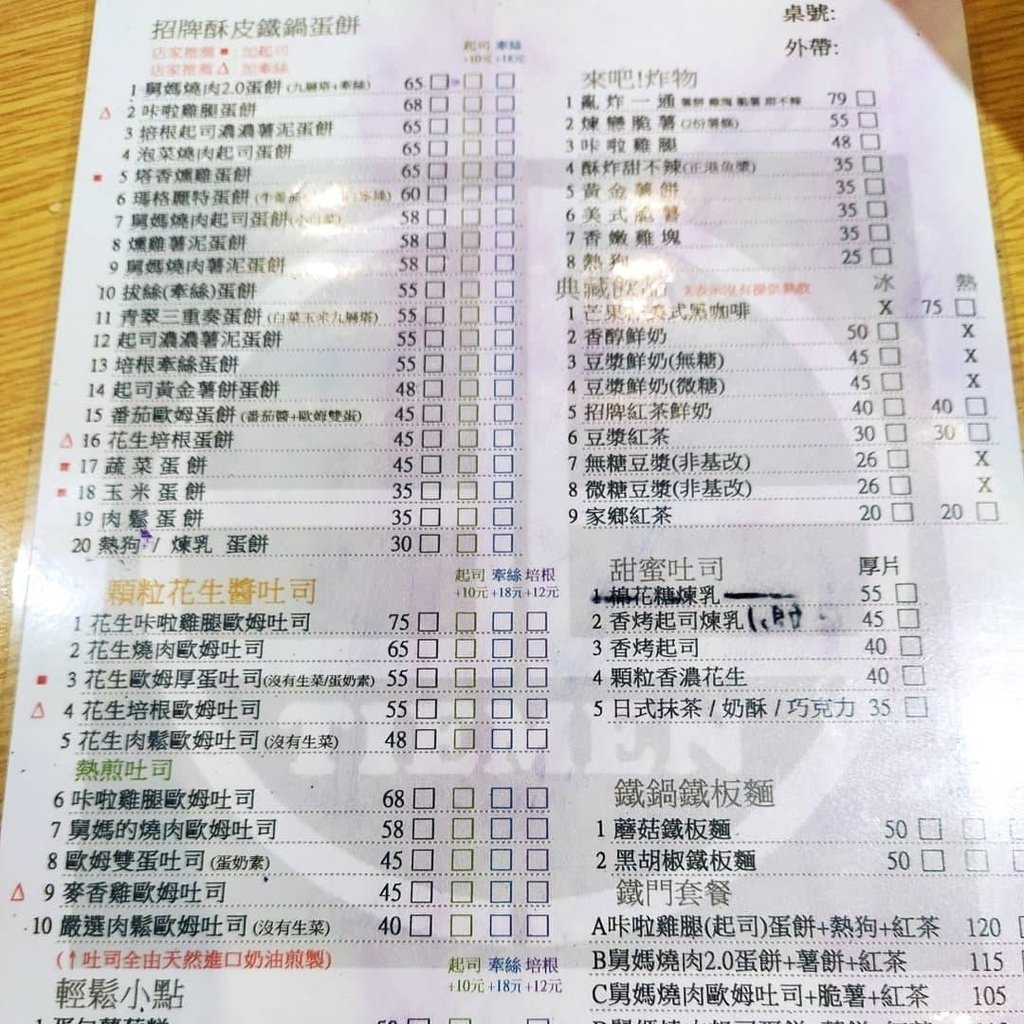 桌號:
外帶:
招牌酥皮鐵鍋蛋餅
店家推薦 ■ : 加起司
店家推薦 △ : 加牽絲
起司 牽絲
+10元 +18元
1 舅媽燒肉2.0蛋餅 (九層塔+牽絲) 65
△ 2 咔啦雞腿蛋餅 68
3 培根起司濃濃薯泥蛋餅 65
4 泡菜燒肉起司蛋餅 65
■ 5 塔香燻雞蛋餅 65
6 瑪格麗特蛋餅 60
7 舅媽燒肉起司蛋餅 58
8 燻雞薯泥蛋餅 58
9 舅媽燒肉薯泥蛋餅 58
10 拔絲(牽絲)蛋餅 55
11 青翠三重奏蛋餅 (白菜玉米九層塔) 55
12 起司濃濃薯泥蛋餅 55
13 培根牽絲蛋餅 55
14 起司黃金薯餅蛋餅 48
15 番茄歐姆蛋餅 (番茄醬+歐姆雙蛋) 45
△ 16 花生培根蛋餅 45
■ 17 蔬菜蛋餅 45
■ 18 玉米蛋餅 35
19 肉鬆蛋餅 35
20 熱狗 / 煉乳 蛋餅 30
顆粒花生醬吐司
起司 牽絲 培根
+10元 +18元 +12元
1 花生咔啦雞腿歐姆吐司 75
2 花生燒肉歐姆吐司 65
■ 3 花生歐姆厚蛋吐司 (沒有生菜/蛋奶素) 55
△ 4 花生培根歐姆吐司 55
5 花生肉鬆歐姆吐司 (沒有生菜) 48
熱煎吐司
6 咔啦雞腿歐姆吐司 68
7 舅媽的燒肉歐姆吐司 58
8 歐姆雙蛋吐司 (蛋奶素) 45
△ 9 麥香雞歐姆吐司 45
10 嚴選肉鬆歐姆吐司 (沒有生菜) 40
(↑吐司全由天然進口奶油煎製)
起司 牽絲 培根
+10元 +18元 +12元
輕鬆小點
來吧!炸物
1 亂炸一通 79
2 煉戀脆薯 (2份薯條) 55
3 咔啦雞腿 48
4 酥炸甜不辣 (正港魚漿) 35
5 黃金薯餅 35
6 美式脆薯 35
7 香嫩雞塊 35
8 熱狗 25
典藏飲品 X表示沒有提供熱飲 冰 熱
1 芒果 美式黑咖啡 X 75
2 香醇鮮奶 50 X
3 豆漿鮮奶(無糖) 45 X
4 豆漿鮮奶(微糖) 45 X
5 招牌紅茶鮮奶 40 40
6 豆漿紅茶 30 30
7 無糖豆漿(非基改) 26 X
8 微糖豆漿(非基改) 26 X
9 家鄉紅茶 20 20
甜蜜吐司 厚片
1 棉花糖煉乳 55
2 香烤起司煉乳 45
3 香烤起司 40
4 顆粒香濃花生 40
5 日式抹茶 / 奶酥 / 巧克力 35
鐵鍋鐵板麵
1 蘑菇鐵板麵 50
2 黑胡椒鐵板麵 50
鐵門套餐
A咔啦雞腿(起司)蛋餅+熱狗+紅茶 120
B舅媽燒肉2.0蛋餅+薯餅+紅茶 115
C舅媽燒肉歐姆吐司+脆薯+紅茶 105
TIEMEN